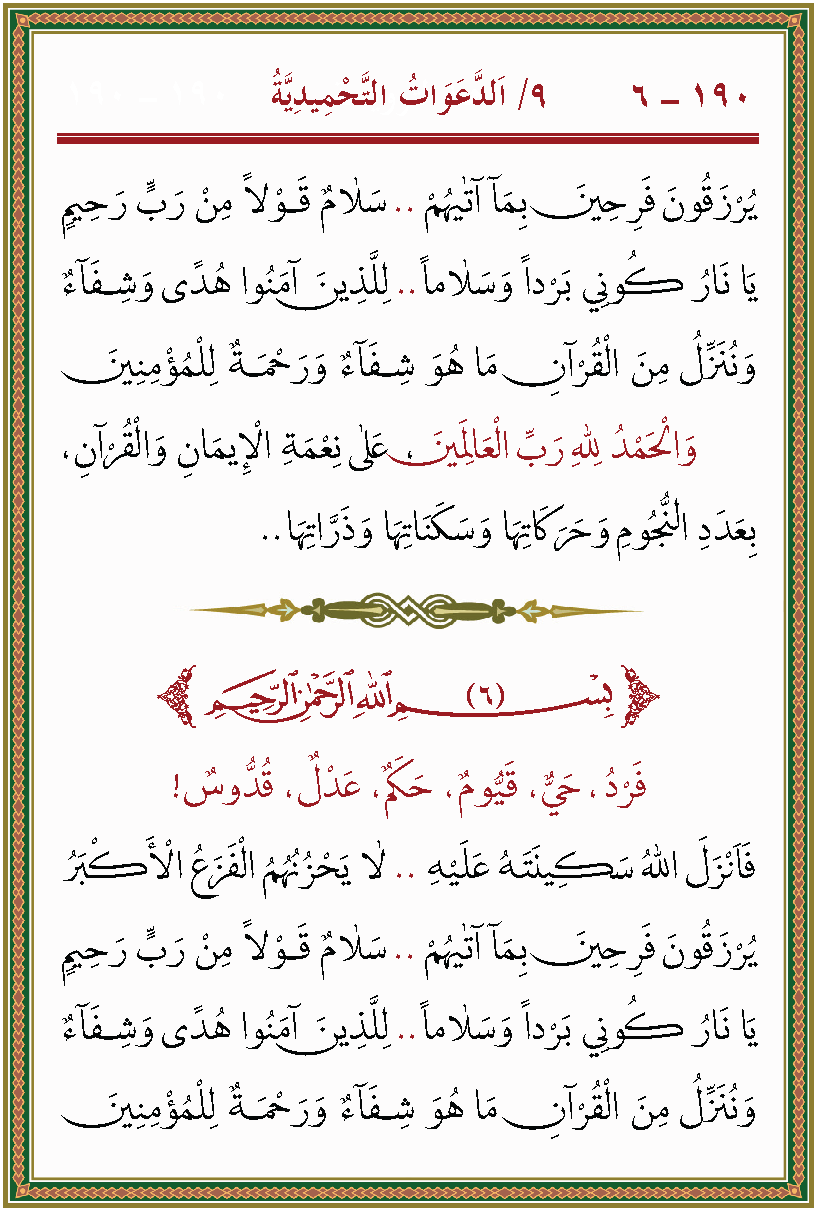 ١٩٠ – ٦ ٩/ اَلدَّعَوَاتُ التَّحْمِيدِيَّةُ ١٩٠ – ١٩٠
يُرْزَقُونَ فَرِحِينَ بِمَآ آتٰيهُمْ .. سَلَامٌ قَوْلاً مِنْ رَبٍّ رَحِيمٍ
يَا نَارُ كُونِي بَرْداً وَسَلَاماً .. لِلَّذِينَ آمَنُوا هُدًى وَشِفَآءٌ
وَنُنَزِّلُ مِنَ الْقُرْآنِ مَا هُوَ شِفَآءٌ وَرَحْمَةٌ لِلْمُؤْمِنِينَ
وَالْحَمْدُ لِلهِ رَبِّ الْعَالَمِينَ، عَلٰى نِعْمَةِ الْإِيمَانِ وَالْقُرْآنِ،
بِعَدَدِ النُّجُومِ وَحَرَكَاتِهَا وَسَكَنَاتِهَا وَذَرَّاتِهَا ..
بِسْــمِ (٦) اللهِ الرَّحْمٰنِ الرَّحِيمِ
فَرْدٌ، حَيٌّ، قَيُّومٌ، حَكَمٌ، عَدْلٌ، قُدُّوسٌ!
فَاَنْزَلَ اللهُ سَكِينَتَهُ عَلَيْهِ .. لَا يَحْزُنُهُمُ الْفَزَعُ الْأَكْبَرُ
يُرْزَقُونَ فَرِحِينَ بِمَآ آتٰيهُمْ .. سَلَامٌ قَوْلاً مِنْ رَبٍّ رَحِيمٍ
يَا نَارُ كُونِي بَرْداً وَسَلَاماً .. لِلَّذِينَ آمَنُوا هُدًى وَشِفَآءٌ
وَنُنَزِّلُ مِنَ الْقُرْآنِ مَا هُوَ شِفَآءٌ وَرَحْمَةٌ لِلْمُؤْمِنِينَ